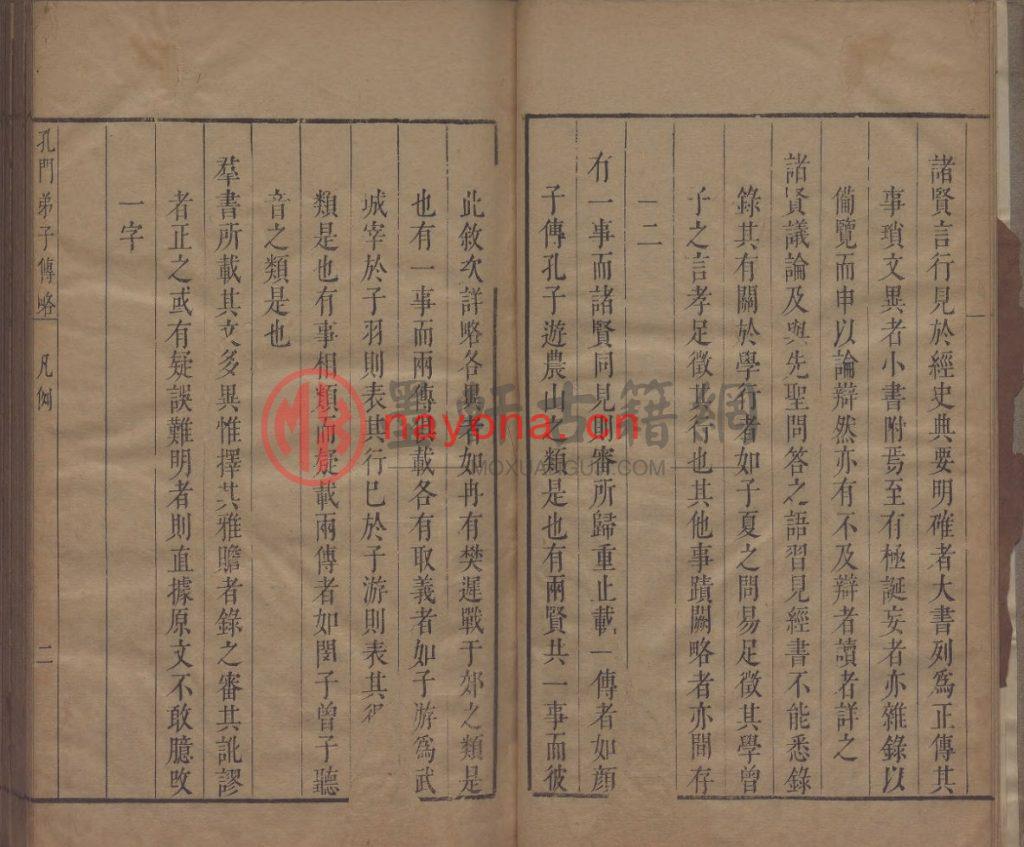 諸賢言行見於經史典要明確者大書列爲正傳其
事瑣文異者小書附焉至有極誕妄者亦雜錄以
備覽而申以論辯然亦有不及辯者讀者詳之
諸賢議論及與先聖問答之語習見經書不能悉錄
錄其有關於學行者如子夏之問易足徵其學曾
子之言孝足徵其行也其他事蹟闕略者亦間存
一二
有一事而諸賢同見則審所歸重止載一傳者如顏
子傳孔子遊農山之類是也有兩賢共一事而彼
此敘次詳略各異者如冉有樊遲戰于郊之類是
也有一事而兩傳共載各有取義者如子游爲武
城宰於子羽則表其行巳於子游則表其
類是也有事相類而疑載兩傳者如閔子曾子聽
音之類是也
羣書所載其文多異惟擇其雅贍者錄之審其訛謬
者正之或有疑誤難明者則直據原文不敢臆改
一字
孔門弟子傳略 凡例 二
墨軒古籍網
nayona.cn
MOXUANGUJI.COM